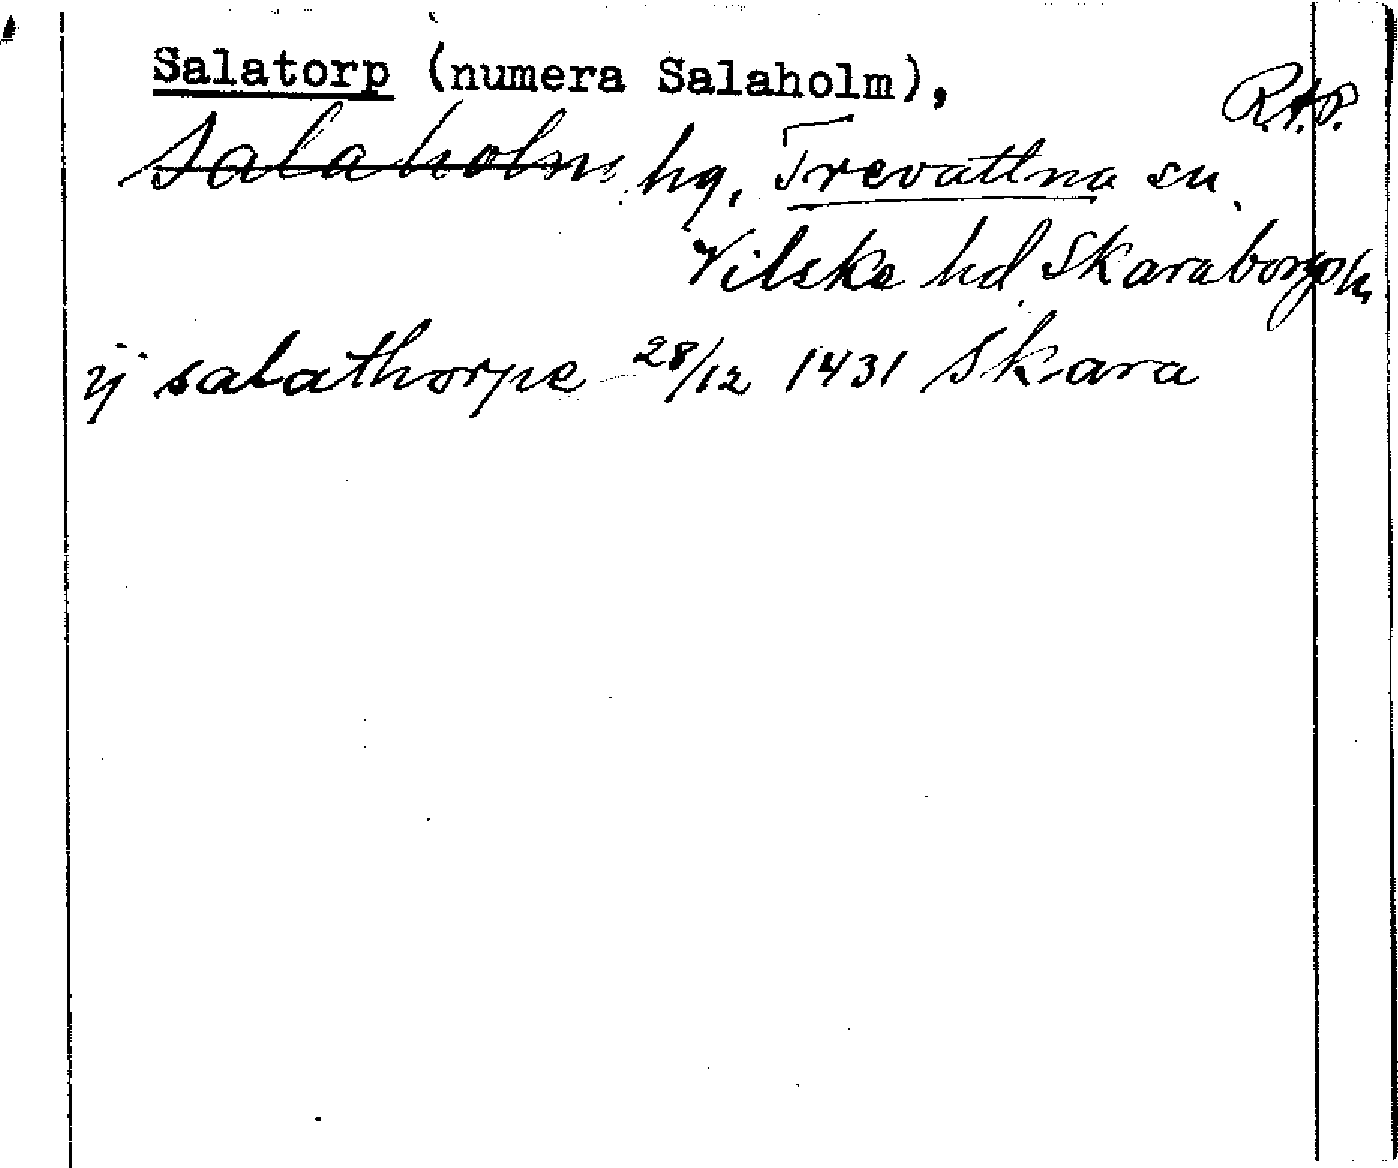 Salatorp (numera Salaholm),
R.A.P.
Salaholm hg, Trevattna sn
Vilske hd Skaraborgs l.
ij salathorpe 28/12 1431 Skara